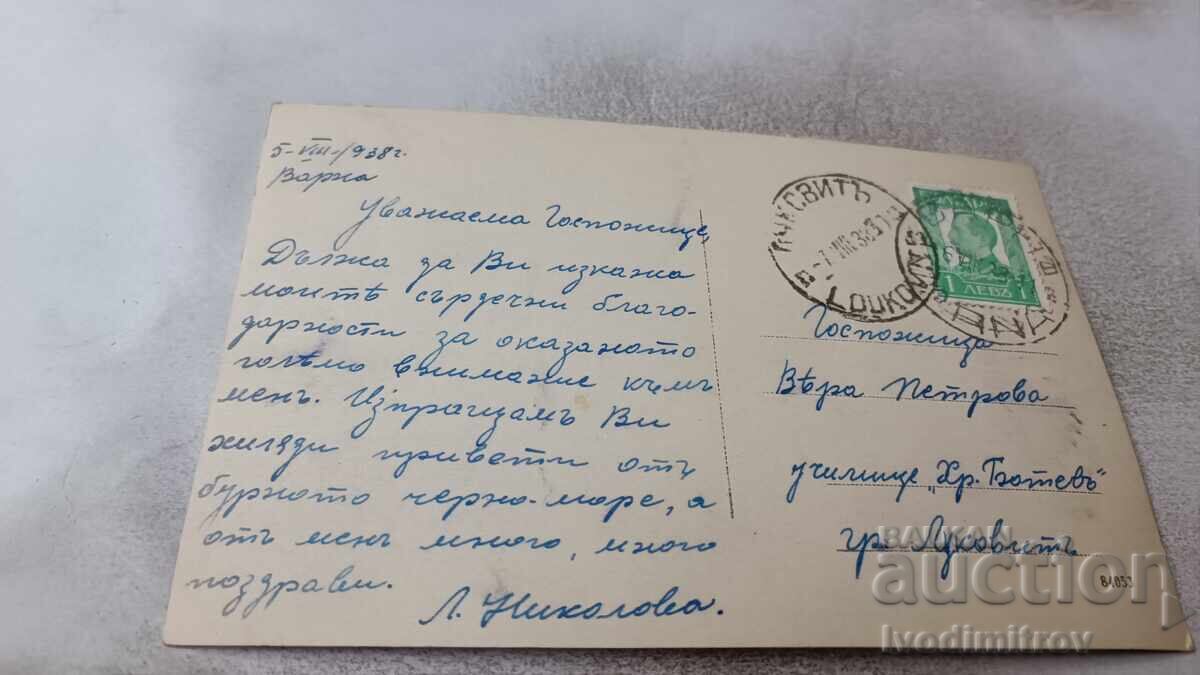 5-VIII-/938г.
Варна
Уважаема Госпожице,
Дължа да Ви изкажа
моитѣ сърдечни благо-
дарности за оказаното
голѣмо внимание къмъ
менъ. Изпращамъ Ви
хиляди привети отъ
бурното черно-море, а
отъ менъ много, много
поздрави.
Л. Николова.
ЛУКОВИТЪ
-7.VIII.38
LOUKOV
1 ЛЕВЪ 1
Госпожица
Вѣра Петрова
училище „Хр. Ботевъ"
гр. Луковитъ
84053
BALKAN
auction
Ivodimitrov